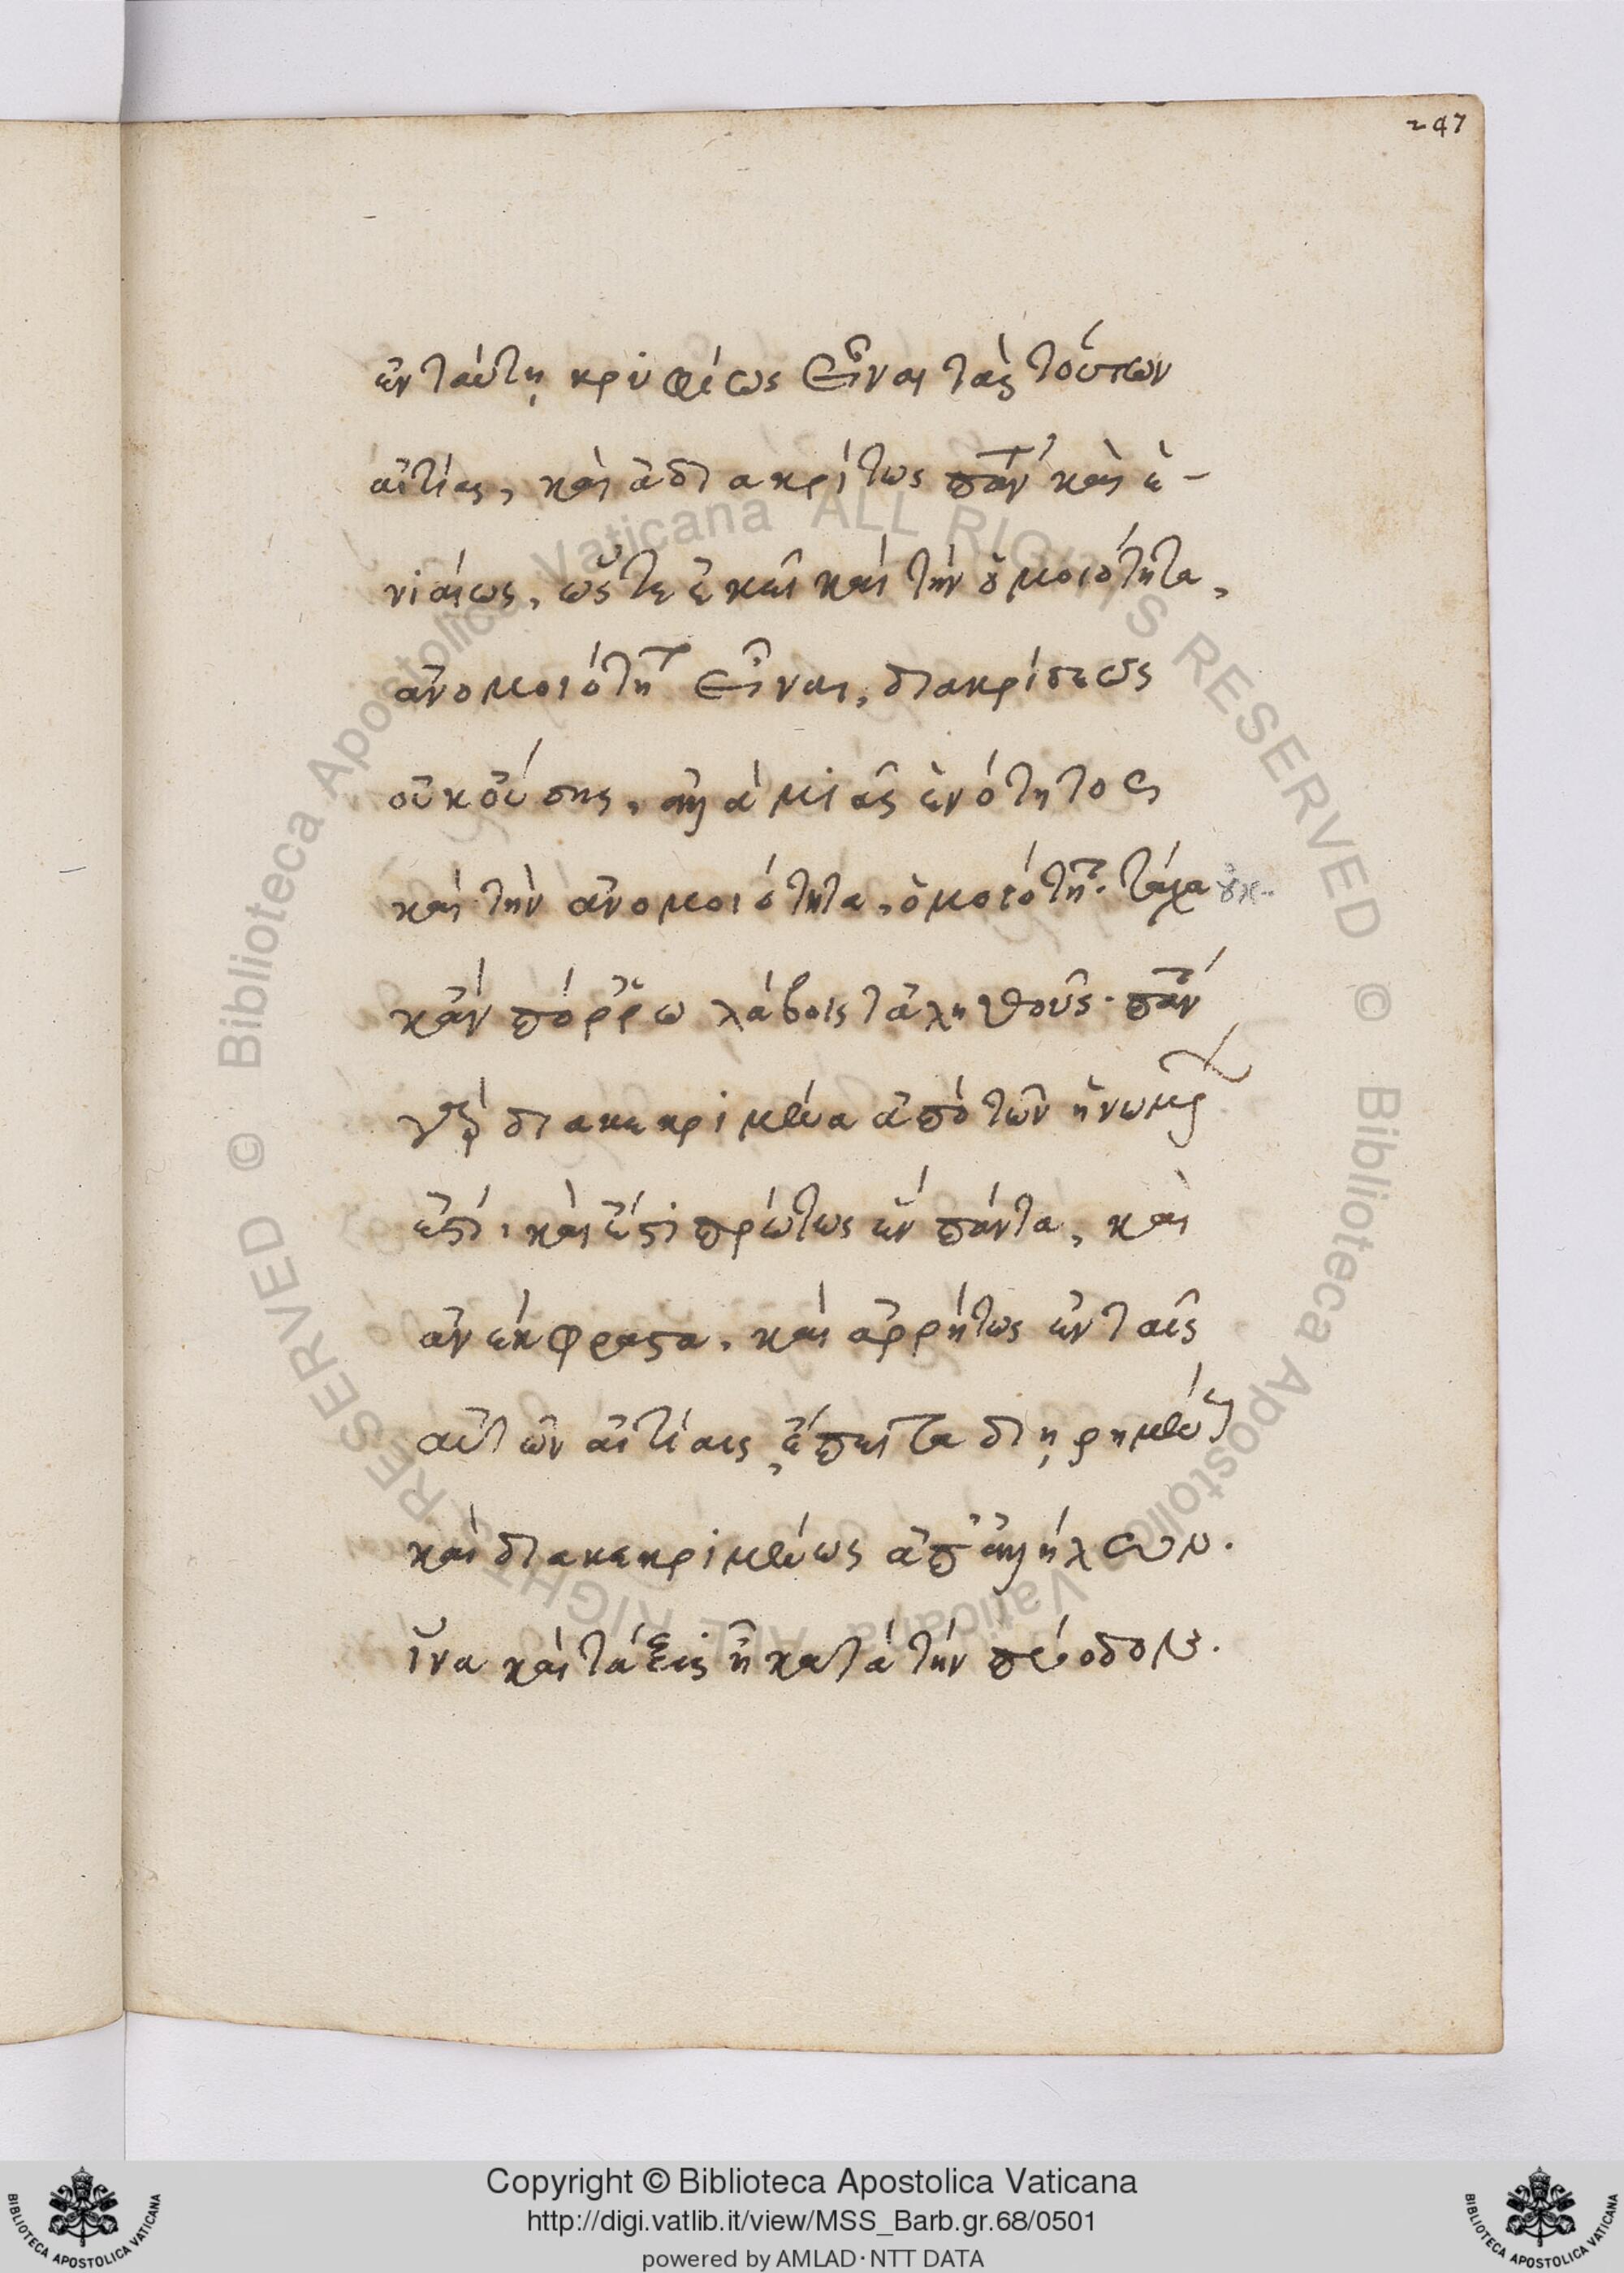 247
ἐν ταύτῃ κρυφίως εἶναι τὰς τούτων
αἰτίας, καὶ ἀδιακρίτως πάντη καὶ ἑ-
νιαίως, ὥστε ἐκεῖ καὶ τὴν ὁμοιότητα,
ἀνομοιότητα εἶναι, διακρίσεως
οὐκ οὔσης, ἀλλὰ μιᾶς ἑνότητος
καὶ τὴν ἀνομοιότητα, ὁμοιότητα. τάχα οὐκ
κἂν πόρρω λάβοις τἀληθοῦς. πάντα
γὰρ διακεκριμένα ἀπὸ τῶν ἡνωμένων
ἐστί. καὶ ἔστι πρώτως ἓν πάντα, καὶ
ἀνέκφραστα, καὶ ἀρρήτως ἐν ταῖς
αὐτῶν αἰτίαις, ἔπειτα διῃρημένως
καὶ διακεκριμένως ἀπ' ἀλλήλων.
ἵνα καὶ τάξις ᾖ κατὰ τὴν πρόοδον.
Copyright © Biblioteca Apostolica Vaticana
http://digi.vatlib.it/view/MSS_Barb.gr.68/0501
powered by AMLAD·NTT DATA
BIBLIOTECA APOSTOLICA VATICANA
BIBLIOTECA APOSTOLICA VATICANA
© Biblioteca Apostolica Vaticana ALL RIGHTS RESERVED
© Biblioteca Apostolica Vaticana ALL RIGHTS RESERVED